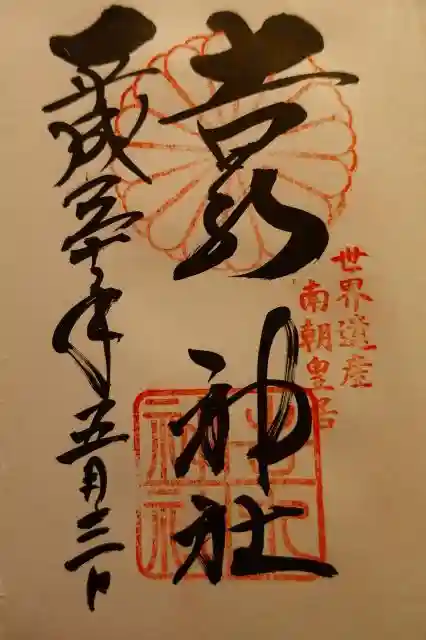 世界遺産
南朝皇居
吉水神社
吉水
神社
平成三十年五月三日